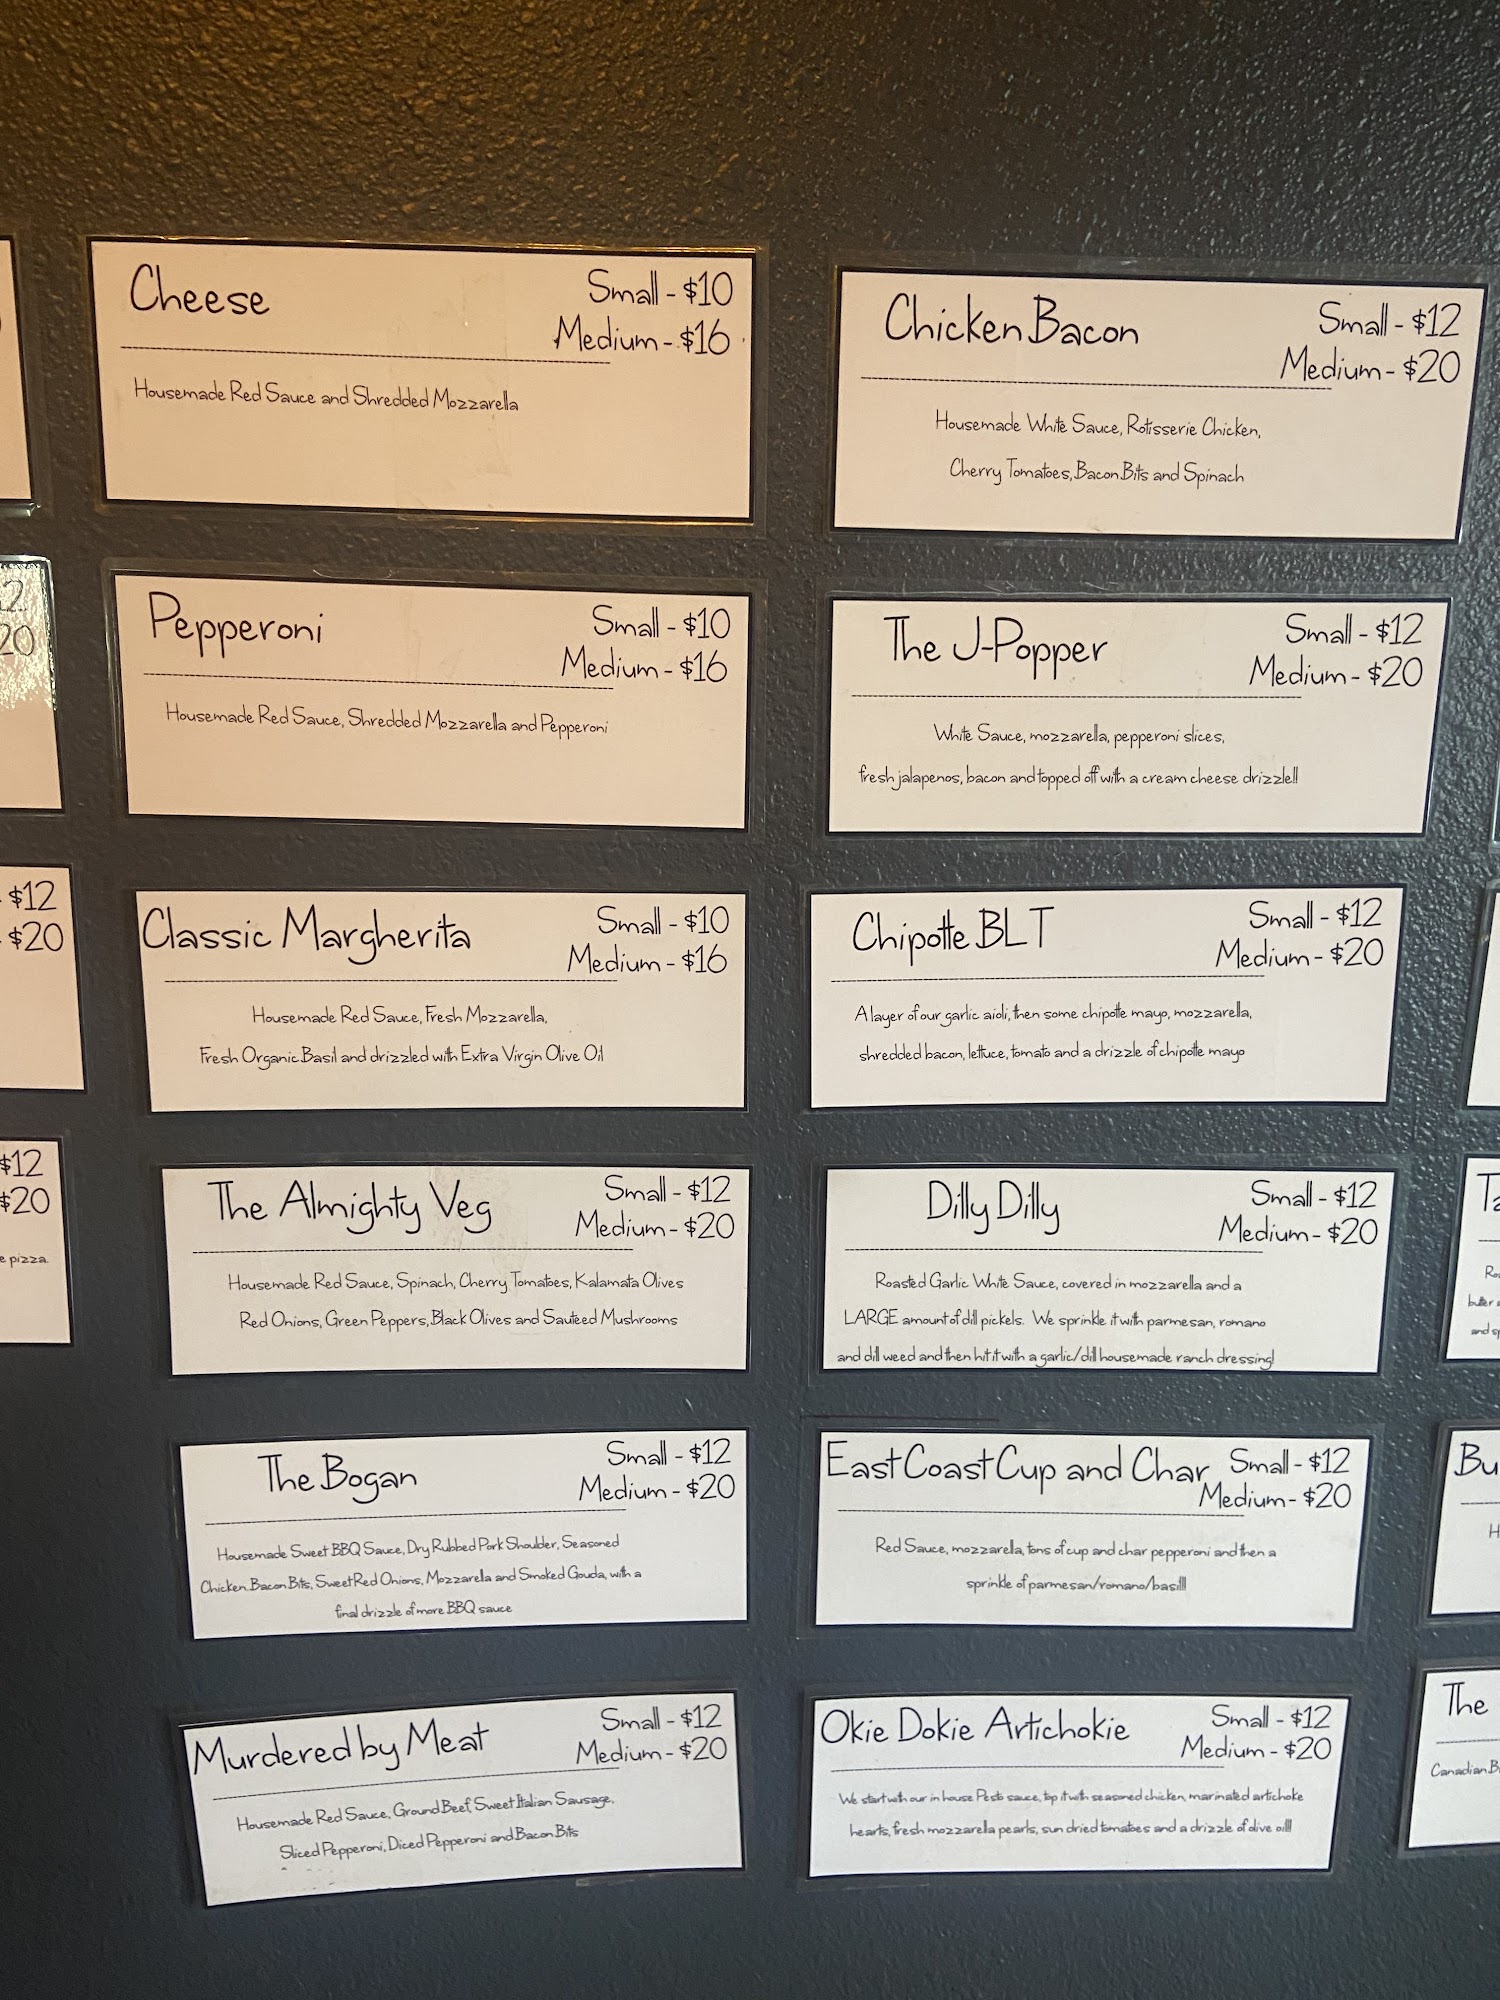 Cheese
Small - $10
Medium - $16
Housemade Red Sauce and Shredded Mozzarella
Pepperoni
Small - $10
Medium - $16
Housemade Red Sauce, Shredded Mozzarella and Pepperoni
Classic Margherita
Small - $10
Medium - $16
Housemade Red Sauce, Fresh Mozzarella,
Fresh Organic Basil and drizzled with Extra Virgin Olive Oil
The Almighty Veg
Small - $12
Medium - $20
Housemade Red Sauce, Spinach, Cherry Tomatoes, Kalamata Olives
Red Onions, Green Peppers, Black Olives and Sauteed Mushrooms
The Bogan
Small - $12
Medium - $20
Housemade Sweet BBQ Sauce, Dry Rubbed Pork Shoulder, Seasoned
Chicken, Bacon Bits, Sweet Red Onions, Mozzarella and Smoked Gouda, with a
final drizzle of more BBQ sauce
Murdered by Meat
Small - $12
Medium - $20
Housemade Red Sauce, Ground Beef, Sweet Italian Sausage,
Sliced Pepperoni, Diced Pepperoni and Bacon Bits
Chicken Bacon
Small - $12
Medium - $20
Housemade White Sauce, Rotisserie Chicken,
Cherry Tomatoes, Bacon Bits and Spinach
The J-Popper
Small - $12
Medium - $20
White Sauce, mozzarella, pepperoni slices,
fresh jalapenos, bacon and topped off with a cream cheese drizzle!!
Chipotle BLT
Small - $12
Medium - $20
A layer of our garlic aioli, then some chipotle mayo, mozzarella,
shredded bacon, lettuce, tomato and a drizzle of chipotle mayo
Dilly Dilly
Small - $12
Medium - $20
Roasted Garlic White Sauce, covered in mozzarella and a
LARGE amount of dill pickels. We sprinkle it with parmesan, romano
and dill weed and then hit it with a garlic/dill housemade ranch dressing!
East Coast Cup and Char
Small - $12
Medium - $20
Red Sauce, mozzarella, tons of cup and char pepperoni and then a
sprinkle of parmesan/romano/basil!!
Okie Dokie Artichokie
Small - $12
Medium - $20
We start with our in house Pesto sauce, top it with seasoned chicken, marinated artichoke
hearts, fresh mozzarella pearls, sun dried tomatoes and a drizzle of olive oil!!
20
$12
$20
$12
$20
e pizza.
butter
and
The
Canadian B